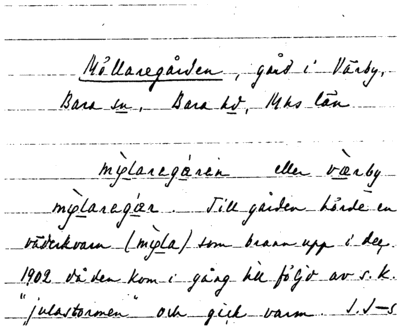 Möllaregården, gård i Värby,
Bara sn, Bara hd, Mhs län
mỳlaregáren eller væ̀rby
mỳlaregær. Till gården hörde en
väderkvarn (mỳla) som brann upp i dec.
1902 då den kom i gång till följd av s.k.
"julastormen" och gick varm. I.I-s